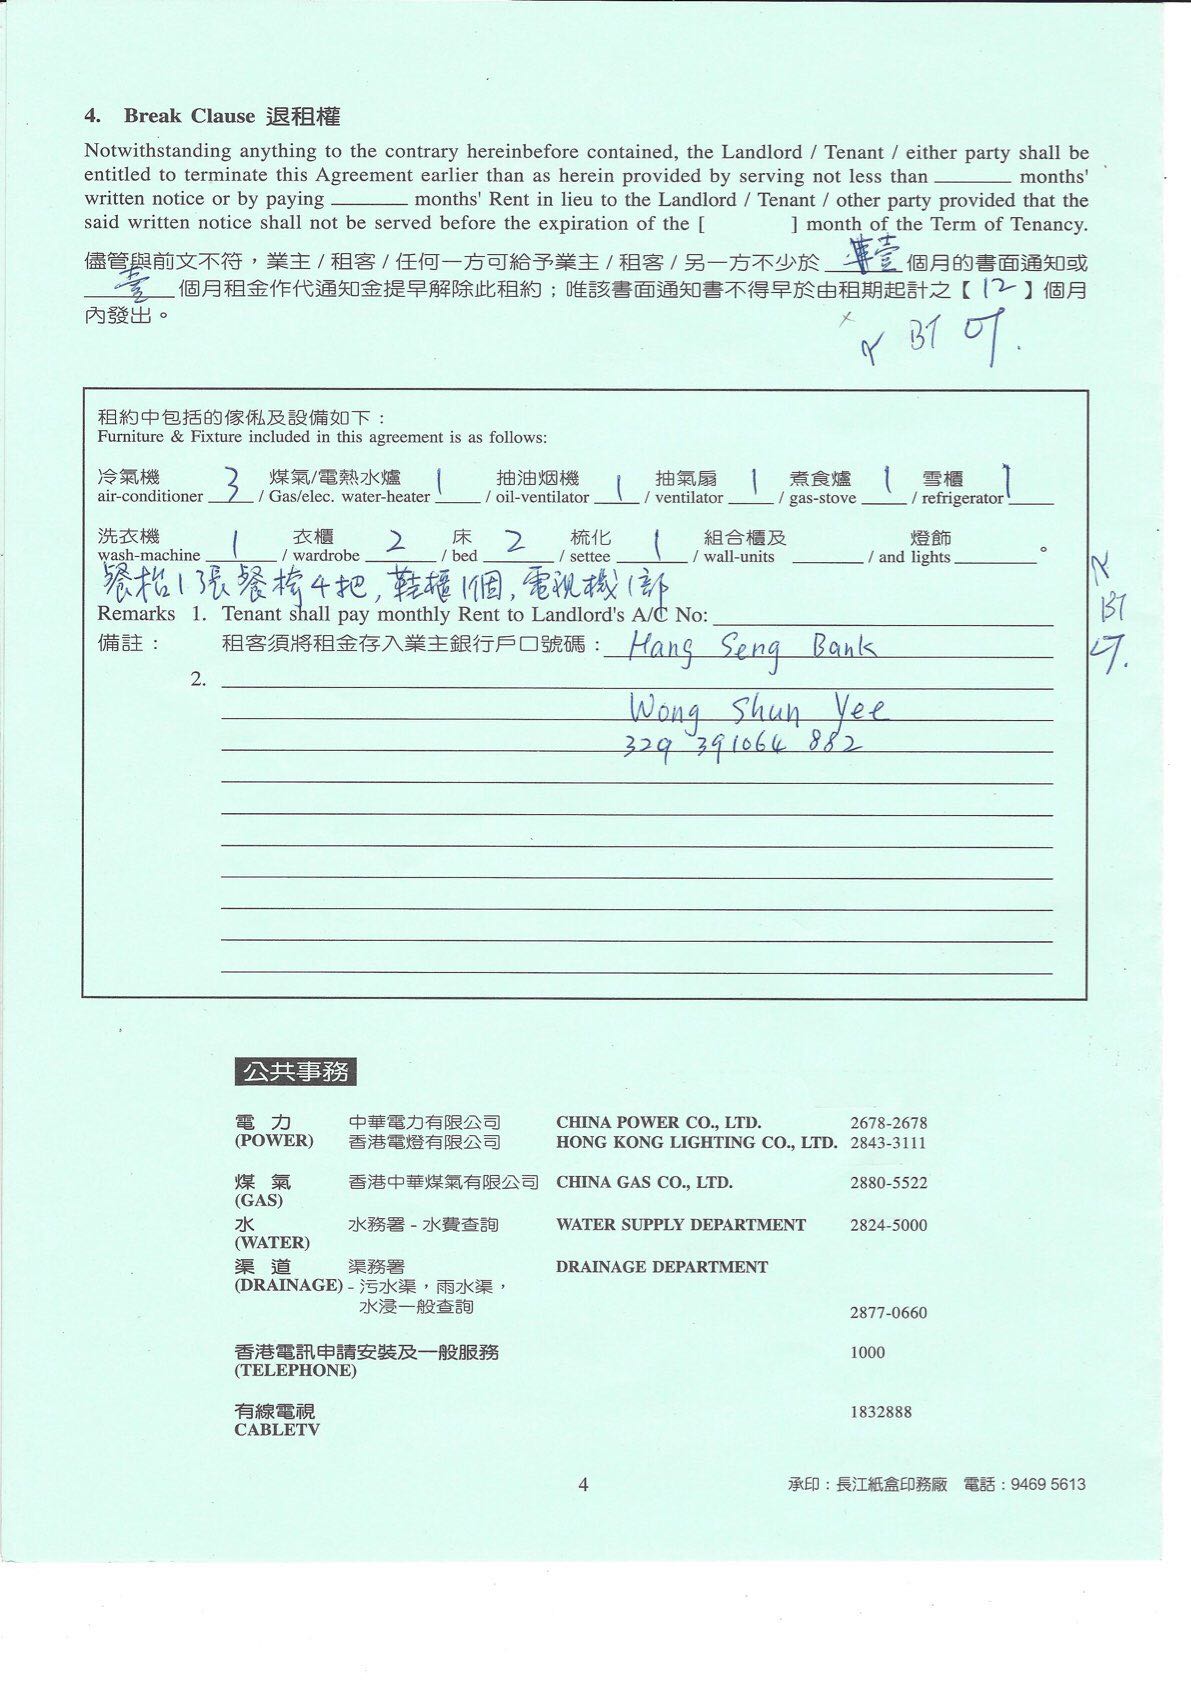 4. Break Clause 退租權
Notwithstanding anything to the contrary hereinbefore contained, the Landlord / Tenant / either party shall be
entitled to terminate this Agreement earlier than as herein provided by serving not less than ________ months'
written notice or by paying ________ months' Rent in lieu to the Landlord / Tenant / other party provided that the
said written notice shall not be served before the expiration of the [ ] month of the Term of Tenancy.
儘管與前文不符，業主 / 租客 / 任何一方可給予業主 / 租客 / 另一方不少於 壹 個月的書面通知或
壹 個月租金作代通知金提早解除此租約；唯該書面通知書不得早於由租期起計之【 12 】個月
內發出。
BT
租約中包括的傢俬及設備如下：
Furniture & Fixture included in this agreement is as follows:
冷氣機 煤氣/電熱水爐 抽油烟機 抽氣扇 煮食爐 雪櫃
air-conditioner 3 / Gas/elec. water-heater 1 / oil-ventilator 1 / ventilator 1 / gas-stove 1 / refrigerator 1
洗衣機 衣櫃 床 梳化 組合櫃及 燈飾
wash-machine 1 / wardrobe 2 / bed 2 / settee 1 / wall-units ________ / and lights ________ 。
餐枱1張餐椅4把，鞋櫃1個，電視機1部
BT
Remarks 1. Tenant shall pay monthly Rent to Landlord's A/C No:
備註： 租客須將租金存入業主銀行戶口號碼： Hang Seng Bank
2.
Wong Shun Yee
329 391064 882
公共事務
電 力 中華電力有限公司 CHINA POWER CO., LTD. 2678-2678
(POWER) 香港電燈有限公司 HONG KONG LIGHTING CO., LTD. 2843-3111
煤 氣 香港中華煤氣有限公司 CHINA GAS CO., LTD. 2880-5522
(GAS)
水 水務署 - 水費查詢 WATER SUPPLY DEPARTMENT 2824-5000
(WATER)
渠 道 渠務署 DRAINAGE DEPARTMENT
(DRAINAGE) - 污水渠，雨水渠，
水浸一般查詢 2877-0660
香港電訊申請安裝及一般服務 1000
(TELEPHONE)
有線電視 1832888
CABLETV
4
承印：長江紙盒印務廠 電話：9469 5613